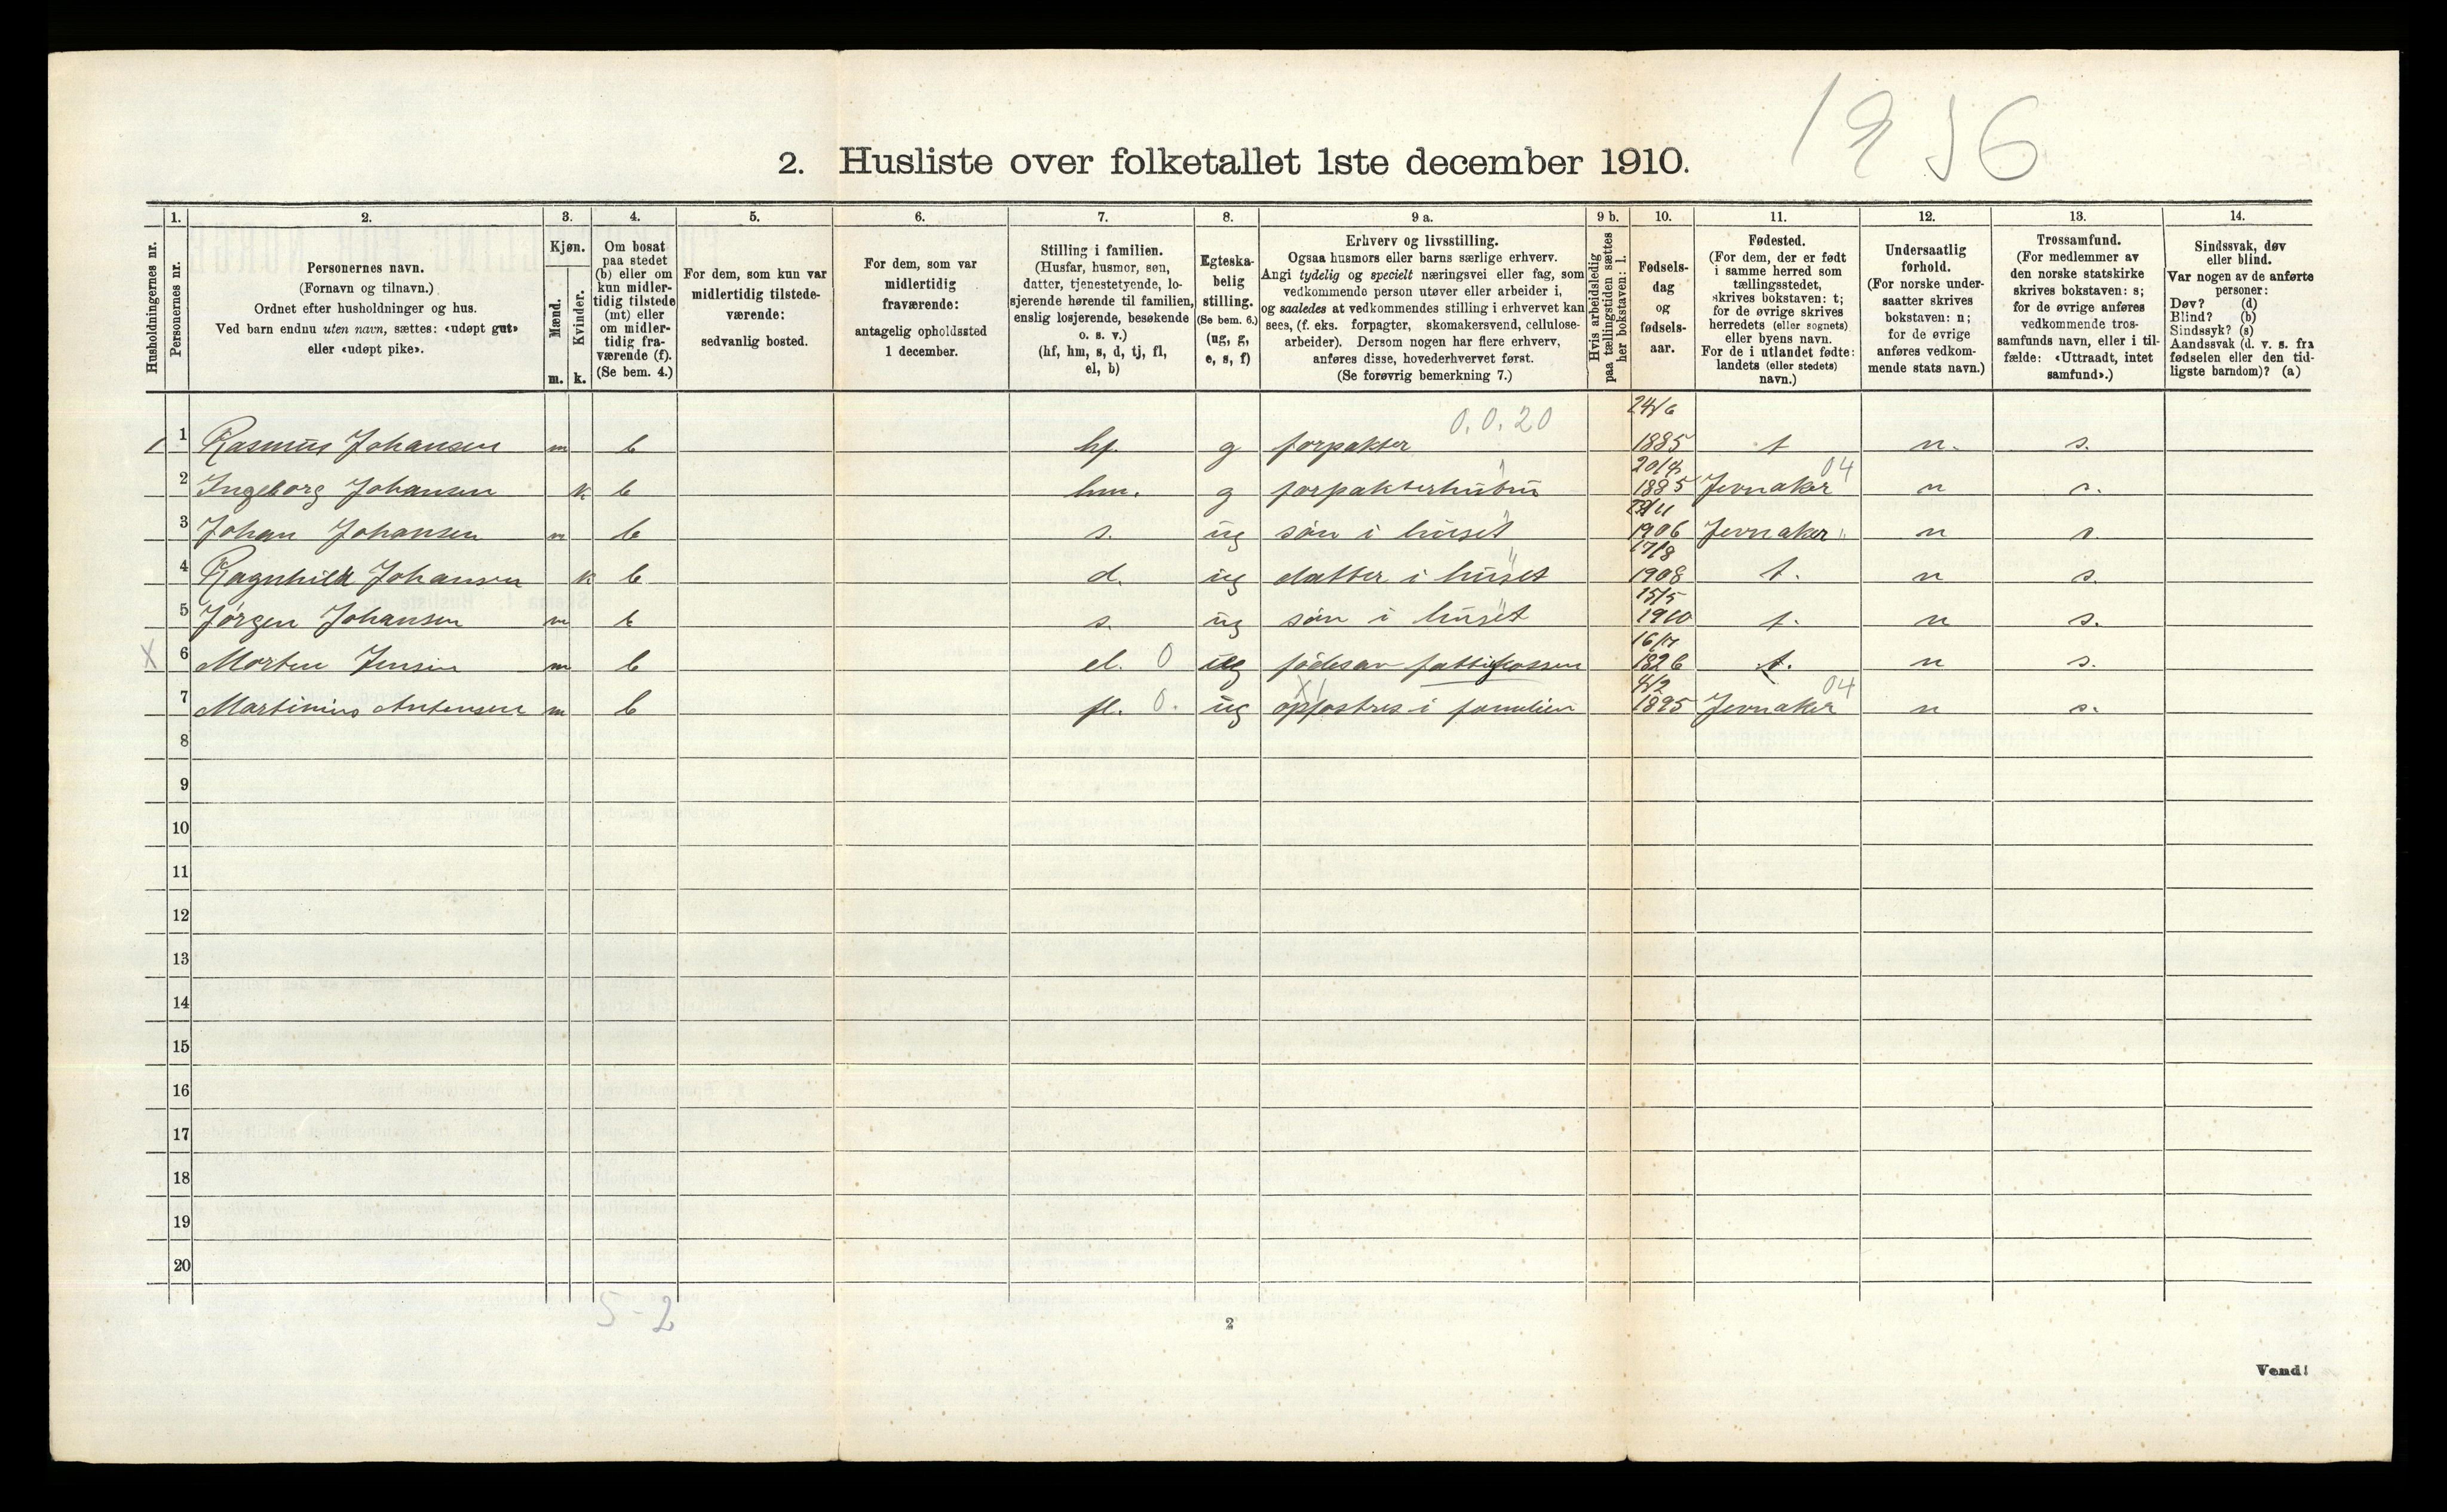 1 2 56
2. Husliste over folketallet 1ste december 1910.
1. 2. 3. 4. 5. 6. 7. 8. 9 a. 9 b. 10. 11. 12. 13. 14.
Husholdningernes nr.
Personernes nr.
Personernes navn.
(Fornavn og tilnavn.)
Ordnet efter husholdninger og hus.
Ved barn endnu uten navn, sættes: «udøpt gut»
eller «udøpt pike».
Kjøn.
Mænd.
Kvinder.
m. k.
Om bosat
paa stedet
(b) eller om
kun midler-
tidig tilstede
(mt) eller
om midler-
tidig fra-
værende (f).
(Se bem. 4.)
For dem, som kun var
midlertidig tilstede-
værende:
sedvanlig bosted.
For dem, som var
midlertidig
fraværende:
antagelig opholdssted
1 december.
Stilling i familien.
(Husfar, husmor, søn,
datter, tjenestetyende, lo-
sjerende hørende til familien,
enslig losjerende, besøkende
o. s. v.)
(hf, hm, s, d, tj, fl,
el, b)
Egteska-
belig
stilling.
(Se bem. 6.)
(ug, g,
e, s, f)
Erhverv og livsstilling.
Ogsaa husmors eller barns særlige erhverv.
Angi tydelig og specielt næringsvei eller fag, som
vedkommende person utøver eller arbeider i,
og saaledes at vedkommendes stilling i erhvervet kan
sees, (f. eks. forpagter, skomakersvend, cellulose-
arbeider). Dersom nogen har flere erhverv,
anføres disse, hovederhvervet først.
(Se forøvrig bemerkning 7.)
Hvis arbeidsledig
paa tællingstiden sættes
her bokstaven: l.
Fødsels-
dag
og
fødsels-
aar.
Fødested.
(For dem, der er født
i samme herred som
tællingsstedet,
skrives bokstaven: t;
for de øvrige skrives
herredets (eller sognets)
eller byens navn.
For de i utlandet fødte:
landets (eller stedets)
navn.)
Undersaatlig
forhold.
(For norske under-
saatter skrives
bokstaven: n;
for de øvrige
anføres vedkom-
mende stats navn.)
Trossamfund.
(For medlemmer av
den norske statskirke
skrives bokstaven: s;
for de øvrige anføres
vedkommende tros-
samfunds navn, eller i til-
fælde: «Uttraadt, intet
samfund».)
Sindssvak, døv
eller blind.
Var nogen av de anførte
personer:
Døv? (d)
Blind? (b)
Sindssyk? (s)
Aandssvak (d. v. s. fra
fødselen eller den tid-
ligste barndom)? (a)
0.0.20 24/6
1 1 Rasmus Johansen m b hf. g forpakter 1885 t n. s.
04
2 Ingeborg Johansen k b hm. g forpakterhustru 1885 Jevnaker n s.
3 Johan Johansen m b s. ug søn i huset 1906 Jevnaker n s.
17/8
4 Ragnhild Johansen k b d. ug datter i huset 1908 t. n s.
15/5
5 Jørgen Johansen m b s. ug søn i huset 1910 t. n s.
X 6 Morten Jensen m b el. 0 ug fødes av fattigkassen 1826 t. n s.
4/2 04
7 Martinius Antonsen m b fl. 0. ug opfostres i familien 1895 Jevnaker n s.
8
9
10
11
12
13
14
15
16
17
18
19
20
5-2
2
Vend!